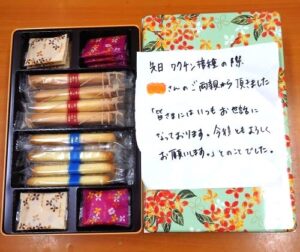 先日 ワクチン接種の際
さんのご両親から頂きました
「皆さまにはいつもお世話に
なっております。今後ともよろしく
お願いします。」とのことでした。